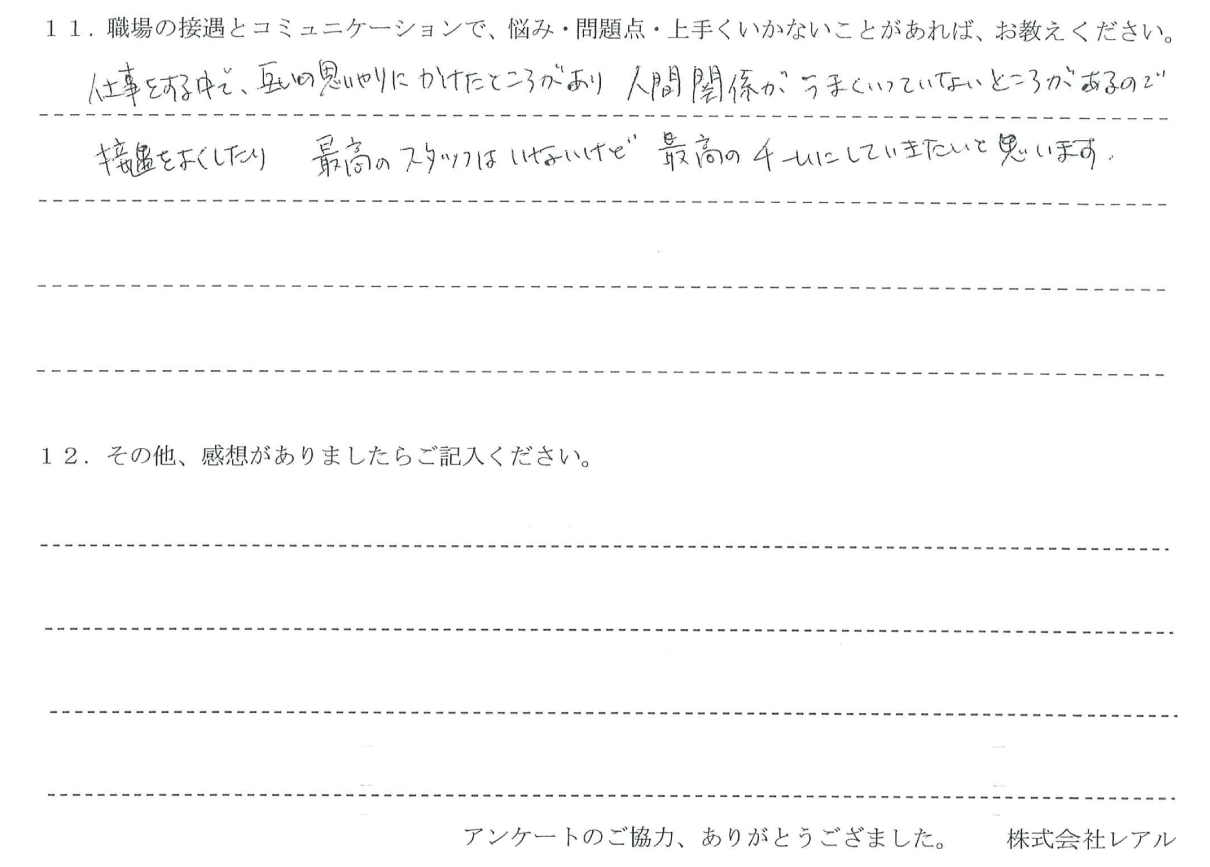 １１．職場の接遇とコミュニケーションで、悩み・問題点・上手くいかないことがあれば、お教えください。
仕事をする中で、互いの思いやりにかけたところがあり 人間関係がうまくいっていないところがあるので
接遇をよくしたり 最高のスタッフはいないけど 最高のチームにしていきたいと思います.
１２．その他、感想がありましたらご記入ください。
アンケートのご協力、ありがとうござました。 株式会社レアル